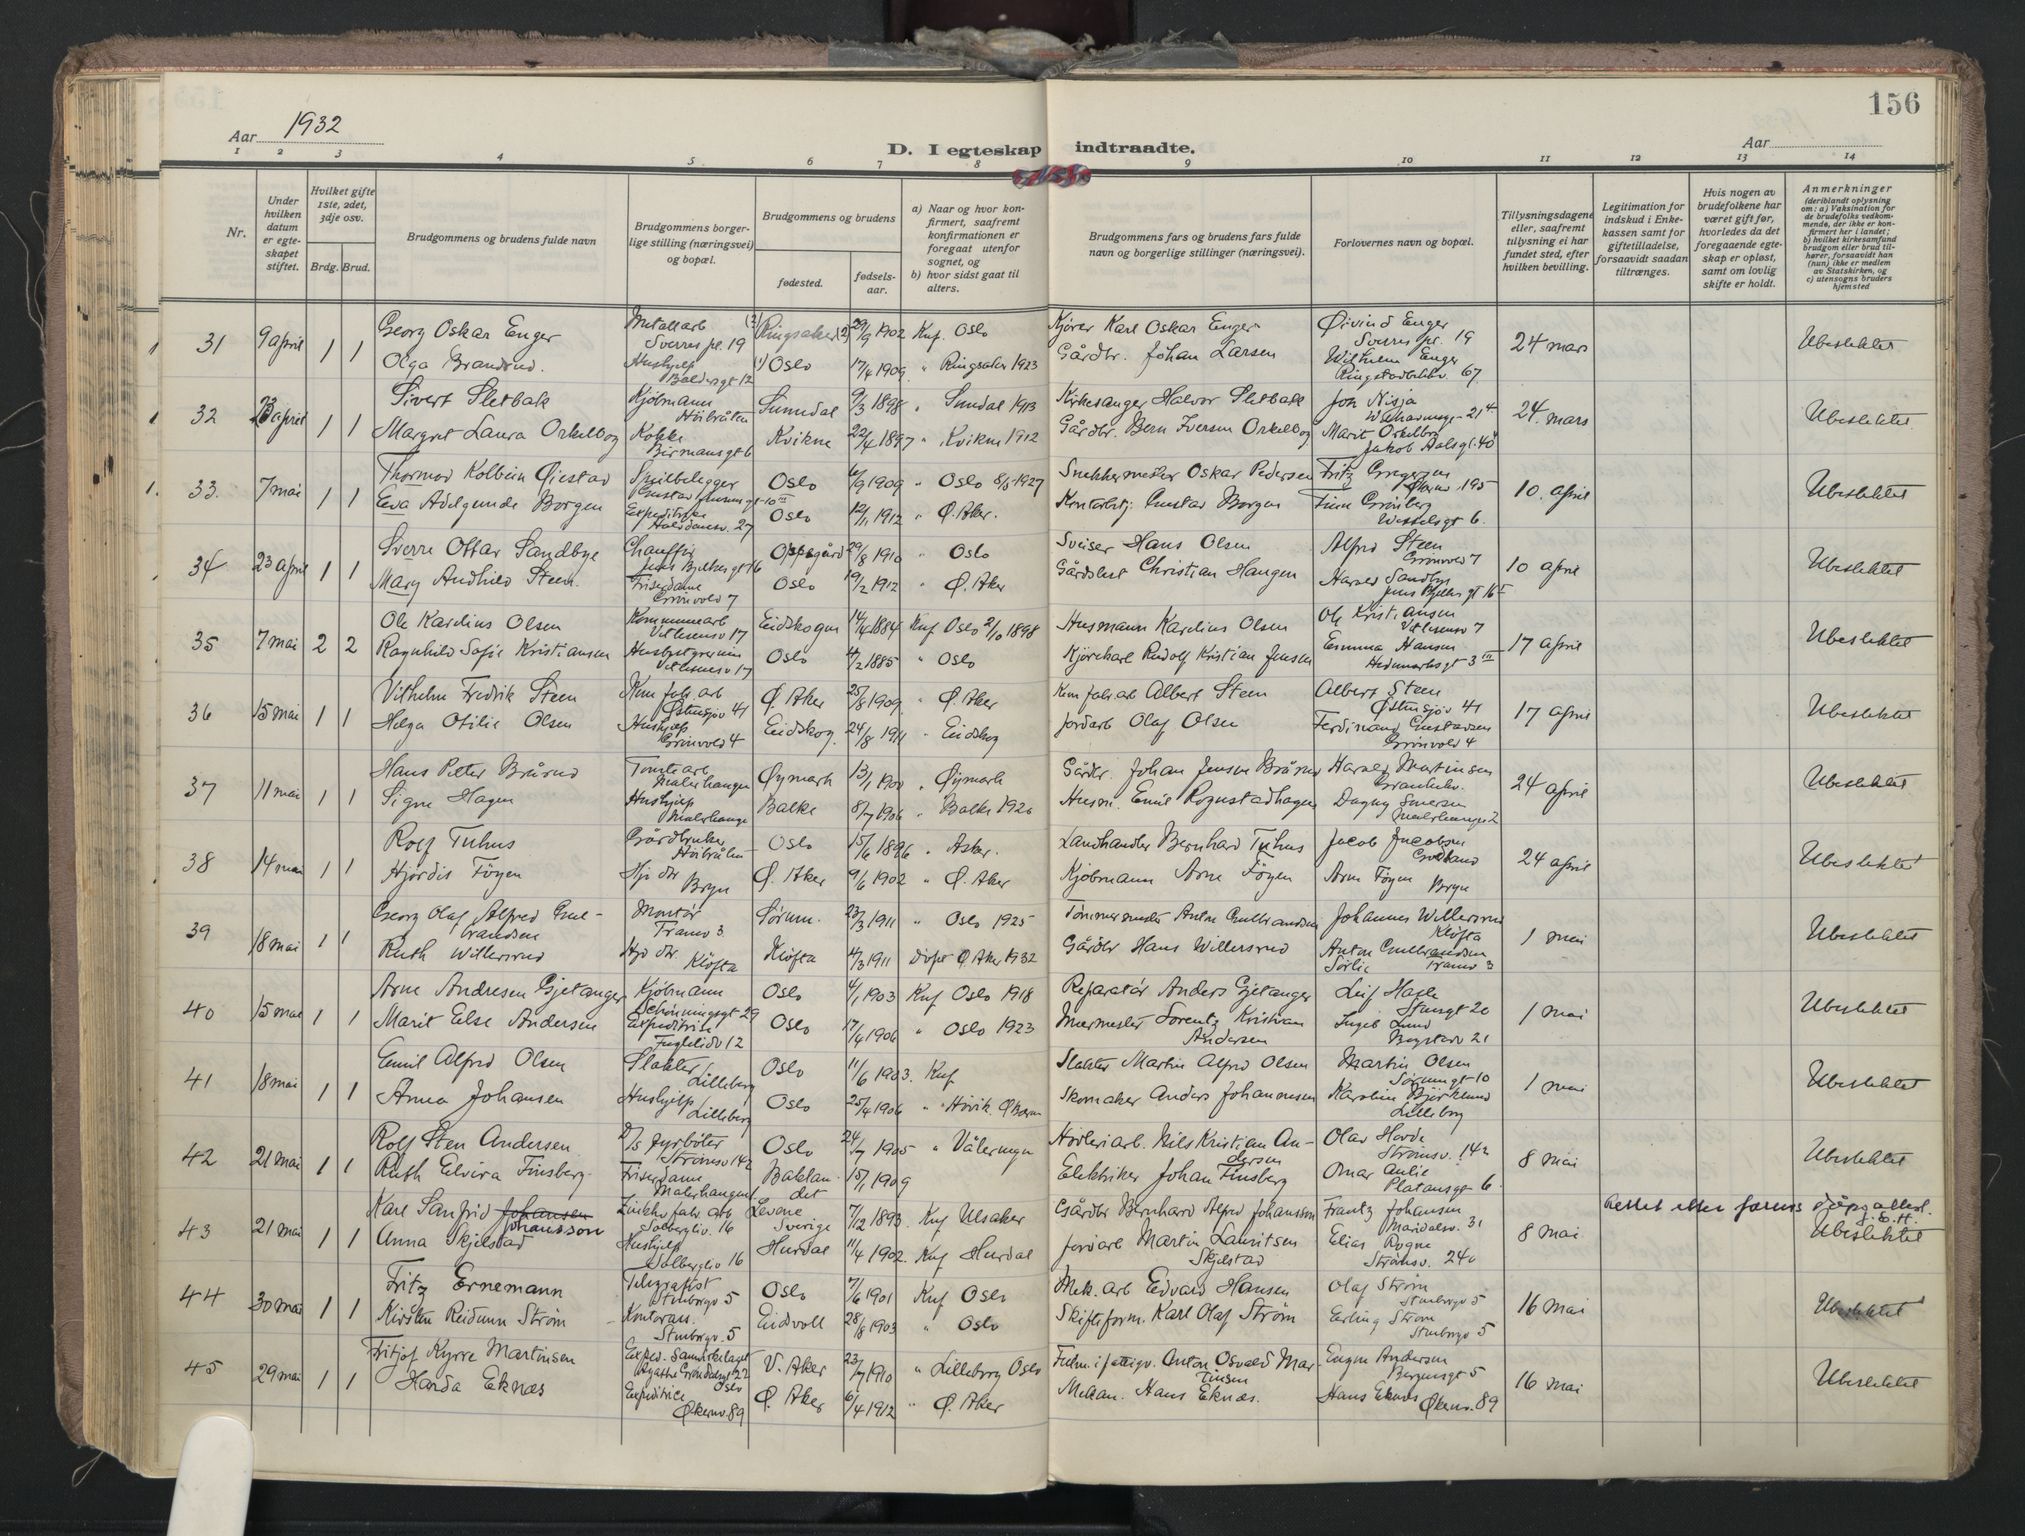 156
Aar 1932
Aar
D. I egteskap indtraadte.
1 2 3 4 5 6 7 8 9 10 11 12 13 14
Nr.
Under hvilken datum er egteskapet stiftet.
Hvilket gifte 1ste, 2det, 3dje osv.
Brdg. Brud.
Brudgommens og brudens fulde navn
Brudgommens borgerlige stilling (næringsvei) og bopæl.
Brudgommens og brudens
fødested.
fødselsaar.
a) Naar og hvor konfirmert, saafremt konfirmationen er foregaat utenfor sognet, og
b) hvor sidst gaat til alters.
Brudgommens fars og brudens fars fulde navn og borgerlige stillinger (næringsvei).
Forlovernes navn og bopæl.
Tillysningsdagene eller, saafremt tillysning ei har fundet sted, efter hvilken bevilling.
Legitimation for indskud i Enkekassen samt for giftetilladelse, forsaavidt saadan tiltrænges.
Hvis nogen av brudefolkene har været gift før, hvorledes da det foregaaende egteskap er opløst, samt om lovlig skifte er holdt.
Anmerkninger (deriblandt oplysning om: a) Vaksination for de brudefolks vedkommende, der ikke er konfirmert her i landet; b) hvilket kirkesamfund brudgom eller brud tilhører, forsaavidt han (hun) ikke er medlem av Statskirken, og c) utensogns bruders hjemsted
31 9 april 1 1 Georg Oskar Enger Metallarb Sverres pl. 19 Ringsaker 29/9 1902 Knf. Oslo Kjører Karl Oskar Enger Øivind Enger Sverres pl. 19 24 mars Ubeslektet
Olga Brandrud. Hushjelp Baldersgt 12 Oslo 17/4 1909. " Ringsaker 1923 Gårdbr. Johan Larsen Wilhelm Enger 67
32 april 1 1 Sivert Sletbak Kjöbmann Höibråten Sunndal 9/3 1898 " Sundal 1913 Kirkesanger Halvor Sletbak Jon 24. mars Ubeslektet
Margret Laura Orkelbog Kokke Birmansgt 6 Kvikne 22/4 1897 " Kvikne 1912 Gårdbr. Bern Iversen Orkelbog Marit Orkelbog Jakob Aalsgt. 40
33. 7 mai 1 1 Thormod Kolbein Øiestad Oslo 6/9 1909 " Oslo 8/5 1927 Snekkermester Oskar Pedersen Fritz Gregersen 195 10. april Ubeslektet
Eva Adelgunde Borgen Expeditrise Haldansv. 27 Oslo 12/1 1912 " Ø. Aker. Gustav Borgen Finn Grönberg Wesselsgt 6.
34 23 april 1 1 Sverre Ottar Sandbye Chauffør Jens Bjelkesgt 16 Oppegård 29/8 1910 " Oslo Sveiser Hans Olsen Alfred Steen Grönvold 7 10 april Ubeslektet
Mary Andhild Steen. Friserdame Grönvold 7 Oslo 19/2 1912 " Ø. Aker Christian Haugen Harald Sandbye Jens Bjelkes gt 16
35 7 mai 2 2 Ole Karelius Olsen Kommunearb 17 Eidskogen 14/4 1884 Knf Oslo 2/10 1898 Husmann Karelius Olsen Ole Kristiansen 7 17 april Ubeslektet
Ragnhild Sofie Kristiansen Husbestyrerinne 17 Oslo 4/2 1885 " Oslo Kjörekarl Rudolf Kristian Jensen Emma Hansen Hedmarksgt 3 III
36 15 mai 1 1 Vilhelm Fredrik Steen Kem fab. arb Østensjøv 41 Ø. Aker 25/8 1909 " Ø. Aker Kem fab. arb Albert Steen Albert Steen Østensjöv 41 17 april Ubeslektet
Helga Otilie Olsen Hushjelp Grönvold 4 Eidskog. 24/8 1911 " Eidskog Jordarb Olaf Olsen Ferdinand Gustavsen Grönvold 4
37 11 mai 1 1 Hans Petter Brårud Tomtearb Malerhaugen Øymark 13/1 1900 " Øymark Gårdbr. Johan Jensen Brårud Harald Martinsen 24 april Ubeslektet
Signe Hagen Hushjelp Malerhauge Balke 8/7 1906 " Balke 1920 Husm. Emil Rognstadhagen Dagny Malerhaugen 2
38 14 mai 1 1 Rolf Tuhus Gårdbruker Höibråten Oslo 15/6 1896 " Asker. Landhandler Bernhard Tuhus Jacob Jacobsen 24 april Ubeslektet
Hjördis Föyen Hjv dtr Bryn Ø. Aker 9/6 1902 " Ø. Aker Kjöbmann Arne Föyen Arne Föyen Bryn
39 18 mai 1 1 Georg Olaf Alfred Gulbrandsen Montör Tramv 3. Sörum. 23/3 1911 " Oslo 1925 Tömmermester Anton Gulbrandsen Johannes Willersrud Klöfta 1 mai Ubeslektet
Ruth Willersrud Hjv dtr Klöfta Klöfta 4/3 1911 Döpt Ø. Aker 1932 Gårdbr Hans Willersrud Anton Gulbrandsen Tramv 3
40 15 mai 1 1 Arne Andresen Gjetanger Kjöbmann Schönningsgt 29 Oslo 4/1 1903 Knf Oslo 1918 Reparatör Anders Gjetanger Leif Stangt 20 1 mai Ubeslektet
Marit Else Andersen Expeditrise Fugleliv 12 Oslo 17/4 1906 " Oslo 1923 Murmester Lorentz Kristian Andersen Ingeb Lund Bogstadv 21
41 18 mai 1 1 Emil Alfred Olsen Slakter Lilleborg Oslo 11/6 1903. Knf Slakter Martin Alfred Olsen Martin Olsen 10 1 mai Ubeslektet
Anna Johansen Hushjelp Lilleborg Oslo 25/4 1906 " Hövik Skomaker Anders Johannesen Karolin Björklund Lilleborg
42 21 mai 1 1 Rolf Sten Andersen D/s fyrböter Strömsv 142 Oslo 24/7 1905 " Vålerengen Hövleriarb. Nils Kristian Andersen Olav Hovde Strömsv. 142 8 mai Ubeslektet
Ruth Elvira Finsberg. Friserdame Malerhaugen 1 Baklandet 15/1 1909 Elektriker Johan Finsberg Omar Aulie Platousgt 6.
43 21 mai 1 1 Karl Sanfrid Johansen Johansson Solbergliv. 16 Levene Sverige 7/12 1893. Knf Ulsaker Gårdbr Bernhard Alfred Johansson Frantz Johansen Maridalsv. 31 8 mai Rettet efter farens dåpsattest. Ubeslektet
Anna Skjelstad Hushjelp Solbergliv 16 Hurdal 11/4 1902. Knf Hurdal Jordarb Martin Lauritsen Skjelstad Elias Rogne Strömsv. 240
44 30 mai 1 1 Fritz Ernemann Telegrafist Stenborgv 5 Oslo 7/6 1901 Knf Oslo Mek. arb Edvard Hansen Olaf Ström Stenborgv 5 16 mai Ubeslektet
Kirsten Reidunn Ström Kontorass. Stenborgv. 5 Eidsvoll 28/8 1903 " Oslo Skifteform. Karl Olaf Ström Erling Ström Stenborgv 5
45 29 mai 1 1 Fritjof Kyrre Martinsen Exped. Samvirkelaget Agathe Gröndahlsgt 22 Oslo V. Aker 23/7 1910 " Lilleborg Oslo Fulm. i fattigv. Anton Osvald Martinsen Eugen Andersen Bergensgt 5 16 mai Ubeslektet
Harda Eknæs Expeditrice Økernv. 89 Ø. Aker 6/4 1912 " Ø. Aker Mekan. Hans Eknæs. Hans Eknæs Økernv. 89